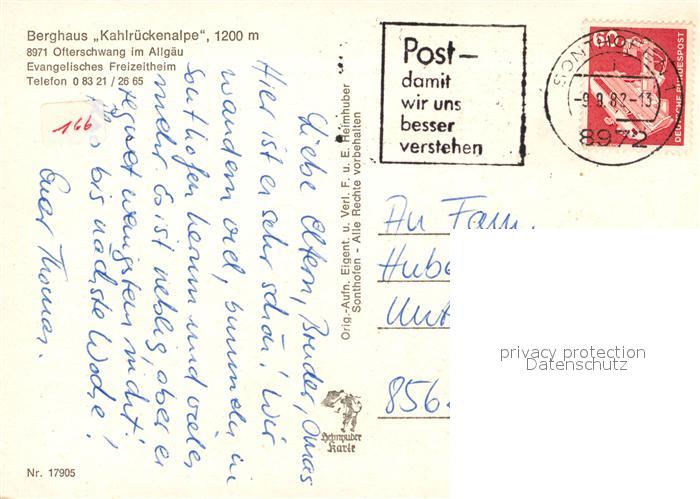 Berghaus „Kahlrückenalpe", 1200 m
8971 Ofterschwang im Allgäu
Evangelisches Freizeitheim
Telefon 0 83 21 / 26 65
166
Liebe Eltern, Bruder, Omas
Hier ist es sehr schön! Wir
wandern viel, bummeln in
Sonthofen herum und vieles
mehr. Es ist neblig, aber es
regnet wenigstens nicht!
bis nächste Woche!
Euer Thomas.
Nr. 17905
Orig.-Aufn. Eigent. u. Verl. F. u. E. Heimhuber
Sonthofen - Alle Rechte vorbehalten
Heimhuber
Karte
Post-
damit
wir uns
besser
verstehen
SONTHOFEN 1
-9.9.82-13
8972
60
DEUTSCHE BUNDESPOST
An Fam.
Hube
Unt
856
privacy protection
Datenschutz